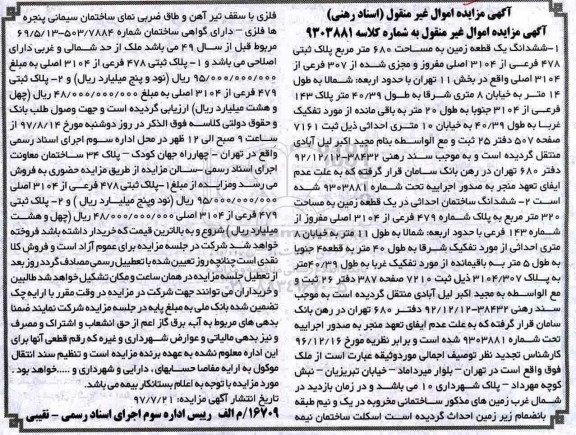 آگهی مزایده اموال غیر منقول (اسناد رهنی)
آگهی مزایده اموال غیر منقول به شماره کلاسه ۹۳۰۳۸۸۱
۱-ششدانگ یک قطعه زمین به مساحت ۶۸۰ متر مربع پلاک ثبتی
۴۷۸ فرعی از ۳۱۰۴ اصلی مفروز و مجزی شده از ۳۰۷ فرعی از
۳۱۰۴ اصلی واقع در بخش ۱۱ تهران با حدود اربعه: شمالا به طول
۱۴ متر به خیابان ۸ متری شرقا به طول ۴۰/۳۹ متر پلاک ۱۴۳
فرعی از ۳۱۰۴ جنوبا به طول ۲۰ متر به باقی مانده از مورد تفکیک
غربا به طول ۴۰/۳۹ به خیابان ۱۰ متری احداثی ذیل ثبت ۷۱۶۱
صفحه ۵۰۷ دفتر ۲۵ ثبت و مع الواسطه بنام مجید اکبر لیل آبادی
منتقل گردیده است و به موجب سند رهنی ۳۸۴۳۲-۹۲/۱۲/۱۲
دفتر ۶۸۰ تهران در رهن بانک سامان قرار گرفته که به علت عدم
ایفای تعهد منجر به صدور اجراییه تحت شماره ۹۳۰۳۸۸۱ شده
است ۲- ششدانگ ساختمان احداثی در یک قطعه زمین به مساحت
۳۲۰ متر مربع به پلاک شماره ۴۷۹ فرعی از ۳۱۰۴ اصلی مفروز از
شماره ۱۴۳ فرعی با حدود اربعه: شمالا به طول ۱۱ متر به خیابان ۸
متری احداثی از مورد تفکیک شرقا به طول ۴۰ متر به قطعه ۴ جنوبا
به طول ۵ متر به باقیمانده از مورد تفکیک غربا به طول ۴۰/۳۹ متر
به پلاک ۳۱۰۴/۳۰۷ ذیل ثبت ۷۲۱۰ صفحه ۳۸۷ دفتر ۲۶ ثبت و
مع الواسطه به مجید اکبر لیل آبادی منتقل گردیده است به موجب
سند رهنی ۳۸۴۳۲-۹۲/۱۲/۱۲ دفتر ۶۸۰ تهران در رهن بانک
سامان قرار گرفته که به علت عدم ایفای تعهد منجر به صدور اجراییه
تحت شماره ۹۳۰۳۸۸۱ شده است و برابر نظریه مورخ ۹۶/۱۲/۱۶
کارشناس تجدید نظر توصیف اجمالی موردوثیقه عبارت است از ملک
فوق واقع است در تهران - بلوار میرداماد - خیابان تبریزیان - نبش
کوچه مهرداد - پلاک شهرداری ۱۰ می باشد و در زمان بازدید در
شمال غرب زمین های مذکور ساختمانی مخروبه در یک و نیم طبقه
بانضمام زیر زمین احداث گردیده است اسکلت ساختمان نیمه
فلزی با سقف تیر آهن و طاق ضربی نمای ساختمان سیمانی پنجره ها
فلزی - دارای گواهی ساختمان شماره ۵۰۳/۷۸۸۴-۶۹/۵/۱۳
مربوط قبل از سال ۴۹ می باشد ملک از حد شمالی و غربی دارای
اصلاحی می باشد و ۱- پلاک ثبتی ۴۷۸ فرعی از ۳۱۰۴ اصلی به مبلغ
۹۵/۰۰۰/۰۰۰/۰۰۰ ریال (نود و پنج میلیارد ریال) و ۲- پلاک ثبتی
۴۷۹ فرعی از ۳۱۰۴ اصلی به مبلغ ۴۸/۰۰۰/۰۰۰/۰۰۰ ریال (چهل
و هشت میلیارد ریال) ارزیابی گردیده است و جهت وصول طلب بانک
و حقوق دولتی کلاسه فوق الذکر در روز دوشنبه مورخ ۹۷/۸/۱۴ از
ساعت ۹ صبح الی ۱۲ ظهر در محل اداره سوم اجرای اسناد رسمی
واقع در تهران - چهارراه جهان کودک - پلاک ۳۴ ساختمان معاونت
اجرای اسناد رسمی -سالن مزایده از طریق مزایده حضوری به فروش
می رسد ومزایده از مبلغ ۱-پلاک ثبتی ۴۷۸ فرعی از ۳۱۰۴ اصلی
۹۵/۰۰۰/۰۰۰/۰۰۰ ریال (نود وپنج میلیارد ریال) و ۲- پلاک ثبتی
۴۷۹ فرعی از ۳۱۰۴ اصلی ۴۸/۰۰۰/۰۰۰/۰۰۰ ریال (چهل و هشت
میلیارد ریال) شروع و به بالاترین قیمت که خریدار داشته باشد فروخته
خواهد شد شرکت در جلسه مزایده برای عموم آزاد است و فروش کلا
نقدی است چنانچه روز تعیین شده با تعطیل رسمی مصادف گردد روز بعد
از تعطیل جلسه مزایده در همان ساعت و مکان تشکیل خواهد شد طالبین
و خریداران می توانند جهت شرکت در مزایده در وقت مقرر با ارایه چک
تضمین شده بانک ملی به مبلغ پایه در جلسه مزایده شرکت نمایند ضمنا
بدهی های مربوط به آب، برق گاز اعم از حق انشعاب و اشتراک و مصرف
و نیز بدهی مالیاتی و عوارض شهرداری و غیره که رقم قطعی آنها برای
این اداره معلوم نشده به عهده برنده مزایده است و تنظیم سند انتقال
موکول به ارایه مفاصا حسابهای، دارایی و شهرداری و .....خواهد بود .
مورد مزایده با توجه به اعلام بستانکار بیمه می باشد.
تاریخ انتشار آگهی مزایده: ۹۷/۷/۲۱
۱۶۷۰۹/م الف رییس اداره سوم اجرای اسناد رسمی - نقیبی